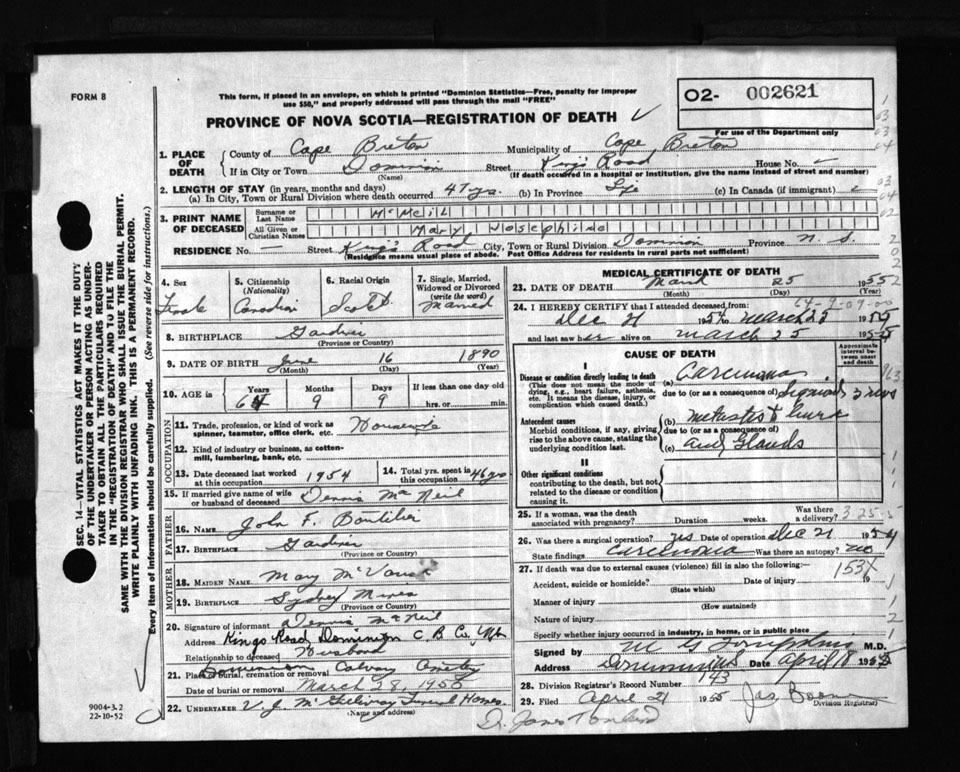 FORM 8
This form, if placed in an envelope, on which is printed "Dominion Statistics—Free, penalty for improper
use $50," and properly addressed will pass through the mail "FREE"
O2- 002621
PROVINCE OF NOVA SCOTIA—REGISTRATION OF DEATH
For use of the Department only
1. PLACE OF DEATH
County of Cape Breton Municipality of Cape Breton
If in City or Town Dominion Street King's Road House No.
(Name) (If death occurred in a hospital or institution, give the name instead of street and number)
2. LENGTH OF STAY (in years, months and days)
(a) In City, Town or Rural Division where death occurred 47 yrs. (b) In Province (c) In Canada (if immigrant)
3. PRINT NAME OF DECEASED
Surname or Last Name McNeil
All Given or Christian Names Mary Josephine
RESIDENCE No. Street King's Road City, Town or Rural Division Dominion Province N. S.
(Residence means usual place of abode. Post Office Address for residents in rural parts not sufficient)
4. Sex
5. Citizenship (Nationality) Canadian
6. Racial Origin
7. Single, Married, Widowed or Divorced (write the word) Married
8. BIRTHPLACE Gardiner
(Province or Country)
9. DATE OF BIRTH June 16 1890
(Month) (Day) (Year)
10. AGE is Years 64 Months 9 Days 9 If less than one day old
hrs. or min.
OCCUPATION
11. Trade, profession, or kind of work as spinner, teamster, office clerk, etc. Housewife
12. Kind of industry or business, as cotten-mill, lumbering, bank, etc.
13. Date deceased last worked at this occupation 1954
14. Total yrs. spent in this occupation 46 yrs
15. If married give name of wife or husband of deceased Dennis McNeil
FATHER
16. NAME John F. Boutilier
17. BIRTHPLACE Gardiner
(Province or Country)
MOTHER
18. MAIDEN NAME Mary
19. BIRTHPLACE Sydney Mines
(Province or Country)
20. Signature of informant Dennis McNeil
Address Kings Road, Dominion C. B. Co.
Relationship to deceased Husband
21. Place of burial, cremation or removal Dominion Calvary Cemetery
Date of burial or removal March 28, 1955
22. UNDERTAKER V. J. McGillivray Funeral Homes.
(Name and address)
MEDICAL CERTIFICATE OF DEATH
23. DATE OF DEATH March 25 1955
(Month) (Day)
24. I HEREBY CERTIFY that I attended deceased from:
Dec 21 1954 to March 25 1955
and last saw her alive on March 25 1955
CAUSE OF DEATH
Approximate interval between onset and death
I
Disease or condition directly leading to death
(This does not mean the mode of dying, e.g., heart failure, asthenia, etc. It means the disease, injury, or complication which caused death.)
(a) Carcinoma
due to (or as a consequence of) Sigmoid 3 mos
Antecedent causes
Morbid conditions, if any, giving rise to the above cause, stating the underlying condition last.
(b)
due to (or as a consequence of)
(c) and Glands
II
Other significant conditions
contributing to the death, but not related to the disease or condition causing it.
25. If a woman, was the death associated with pregnancy? Duration weeks. Was there a delivery?
26. Was there surgical operation? yes Date of operation Dec 21 1954
State findings Carcinoma Was there an autopsy? no
27. If death was due to external causes (violence) fill in also the following:—
Accident, suicide or homicide? Date of injury 19
(State which)
153X
Manner of injury
(How sustained)
Nature of injury
Specify whether injury occurred in industry, in home, or in public place
Signed by M.D.
Address Dominion Date April 18 1955
28. Division Registrar's Record Number 143
29. Filed April 21 1955 Jas Boone
Division Registrar)
SEC. 14—VITAL STATISTICS ACT MAKES IT THE DUTY
OF THE UNDERTAKER OR PERSON ACTING AS UNDER-
TAKER TO OBTAIN ALL THE PARTICULARS REQUIRED
IN THE "REGISTRATION OF DEATH" AND TO FILE THE
SAME WITH THE DIVISION REGISTRAR WHO SHALL ISSUE THE BURIAL PERMIT.
WRITE PLAINLY WITH UNFADING INK. THIS IS A PERMANENT RECORD.
Every item of information should be carefully supplied. (See reverse side for instructions.)
9004-3.2
22-10-52